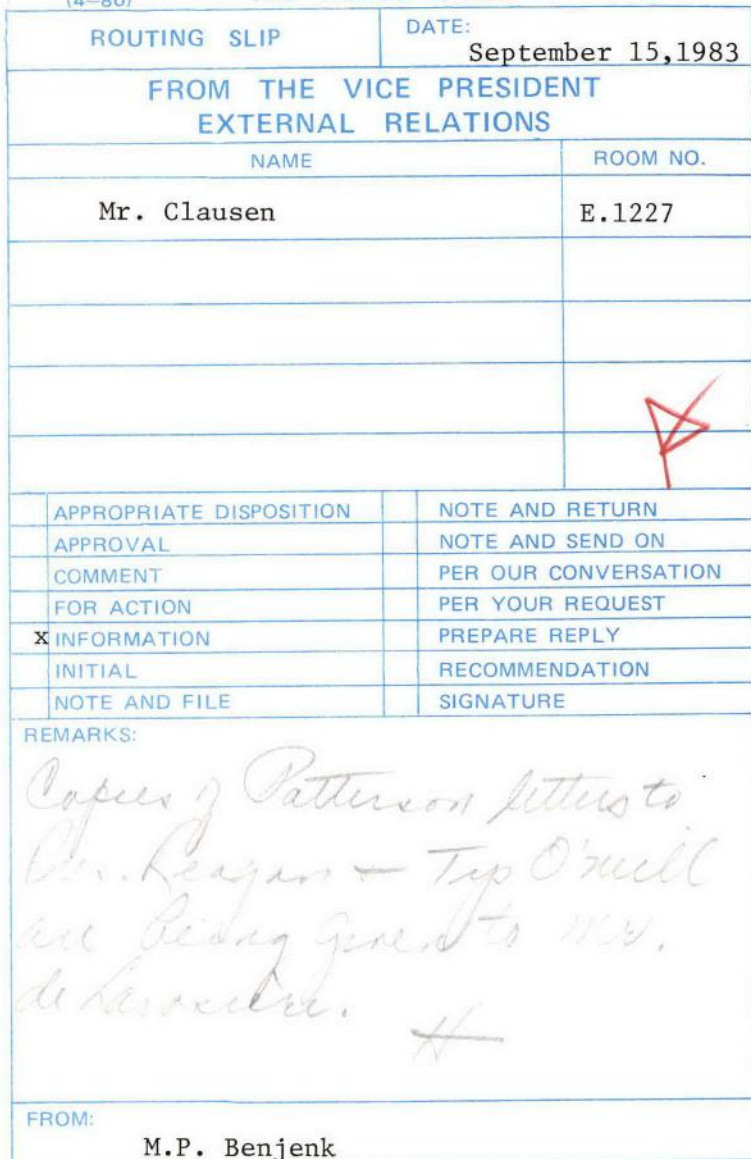 (4-80)
ROUTING SLIP
DATE:
September 15,1983
FROM THE VICE PRESIDENT
EXTERNAL RELATIONS
NAME
ROOM NO.
Mr. Clausen
E.1227
APPROPRIATE DISPOSITION
NOTE AND RETURN
APPROVAL
NOTE AND SEND ON
COMMENT
PER OUR CONVERSATION
FOR ACTION
PER YOUR REQUEST
x INFORMATION
PREPARE REPLY
INITIAL
RECOMMENDATION
NOTE AND FILE
SIGNATURE
REMARKS:
Copies of Patterson letters to
Reagan + Tip O'Neill
are being given to Mr.
de Larosiere.
H
FROM:
M.P. Benjenk